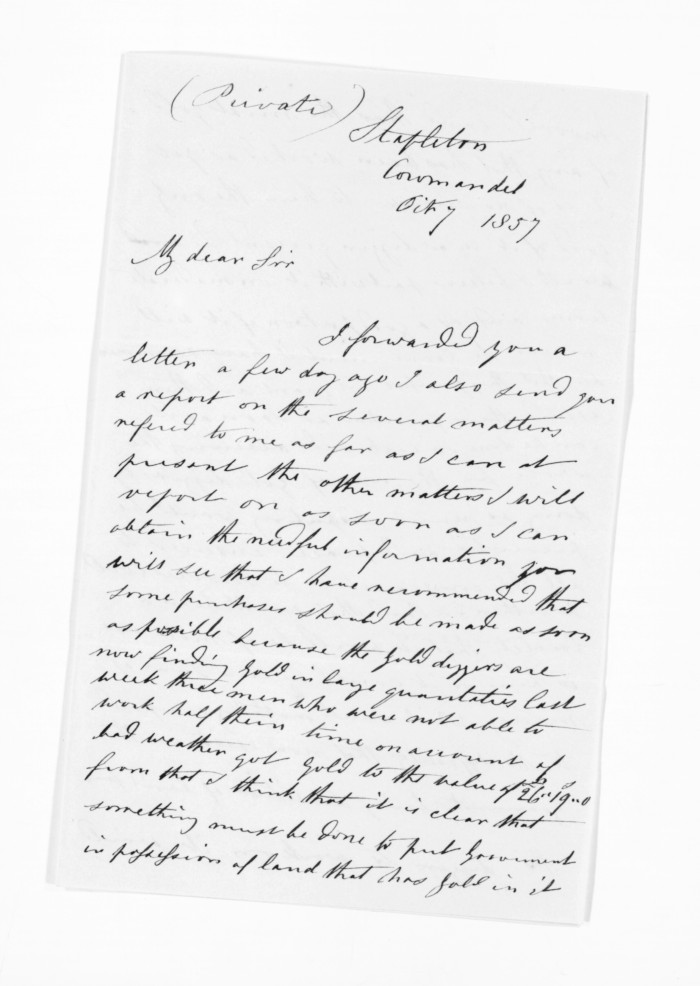 (Private)
Stapleton
Coromandel
Oct 7 1857
My dear Sir
I forwarded you a
letter a few day ago I also send you
a report on the several matters
refered to me as far as I can at
present the other matters I will
report on as soon as I can
obtain the needful information you
will see that I have recommended that
some purchases should be made as soon
as possible because the Gold diggers are
now finding Gold in large quantaties last
week three men who were not able to
work half their time on account of
bad weather got Gold to the value of
from that I think that it is clear that
something must be done to put Government
in possession of land that has Gold in it